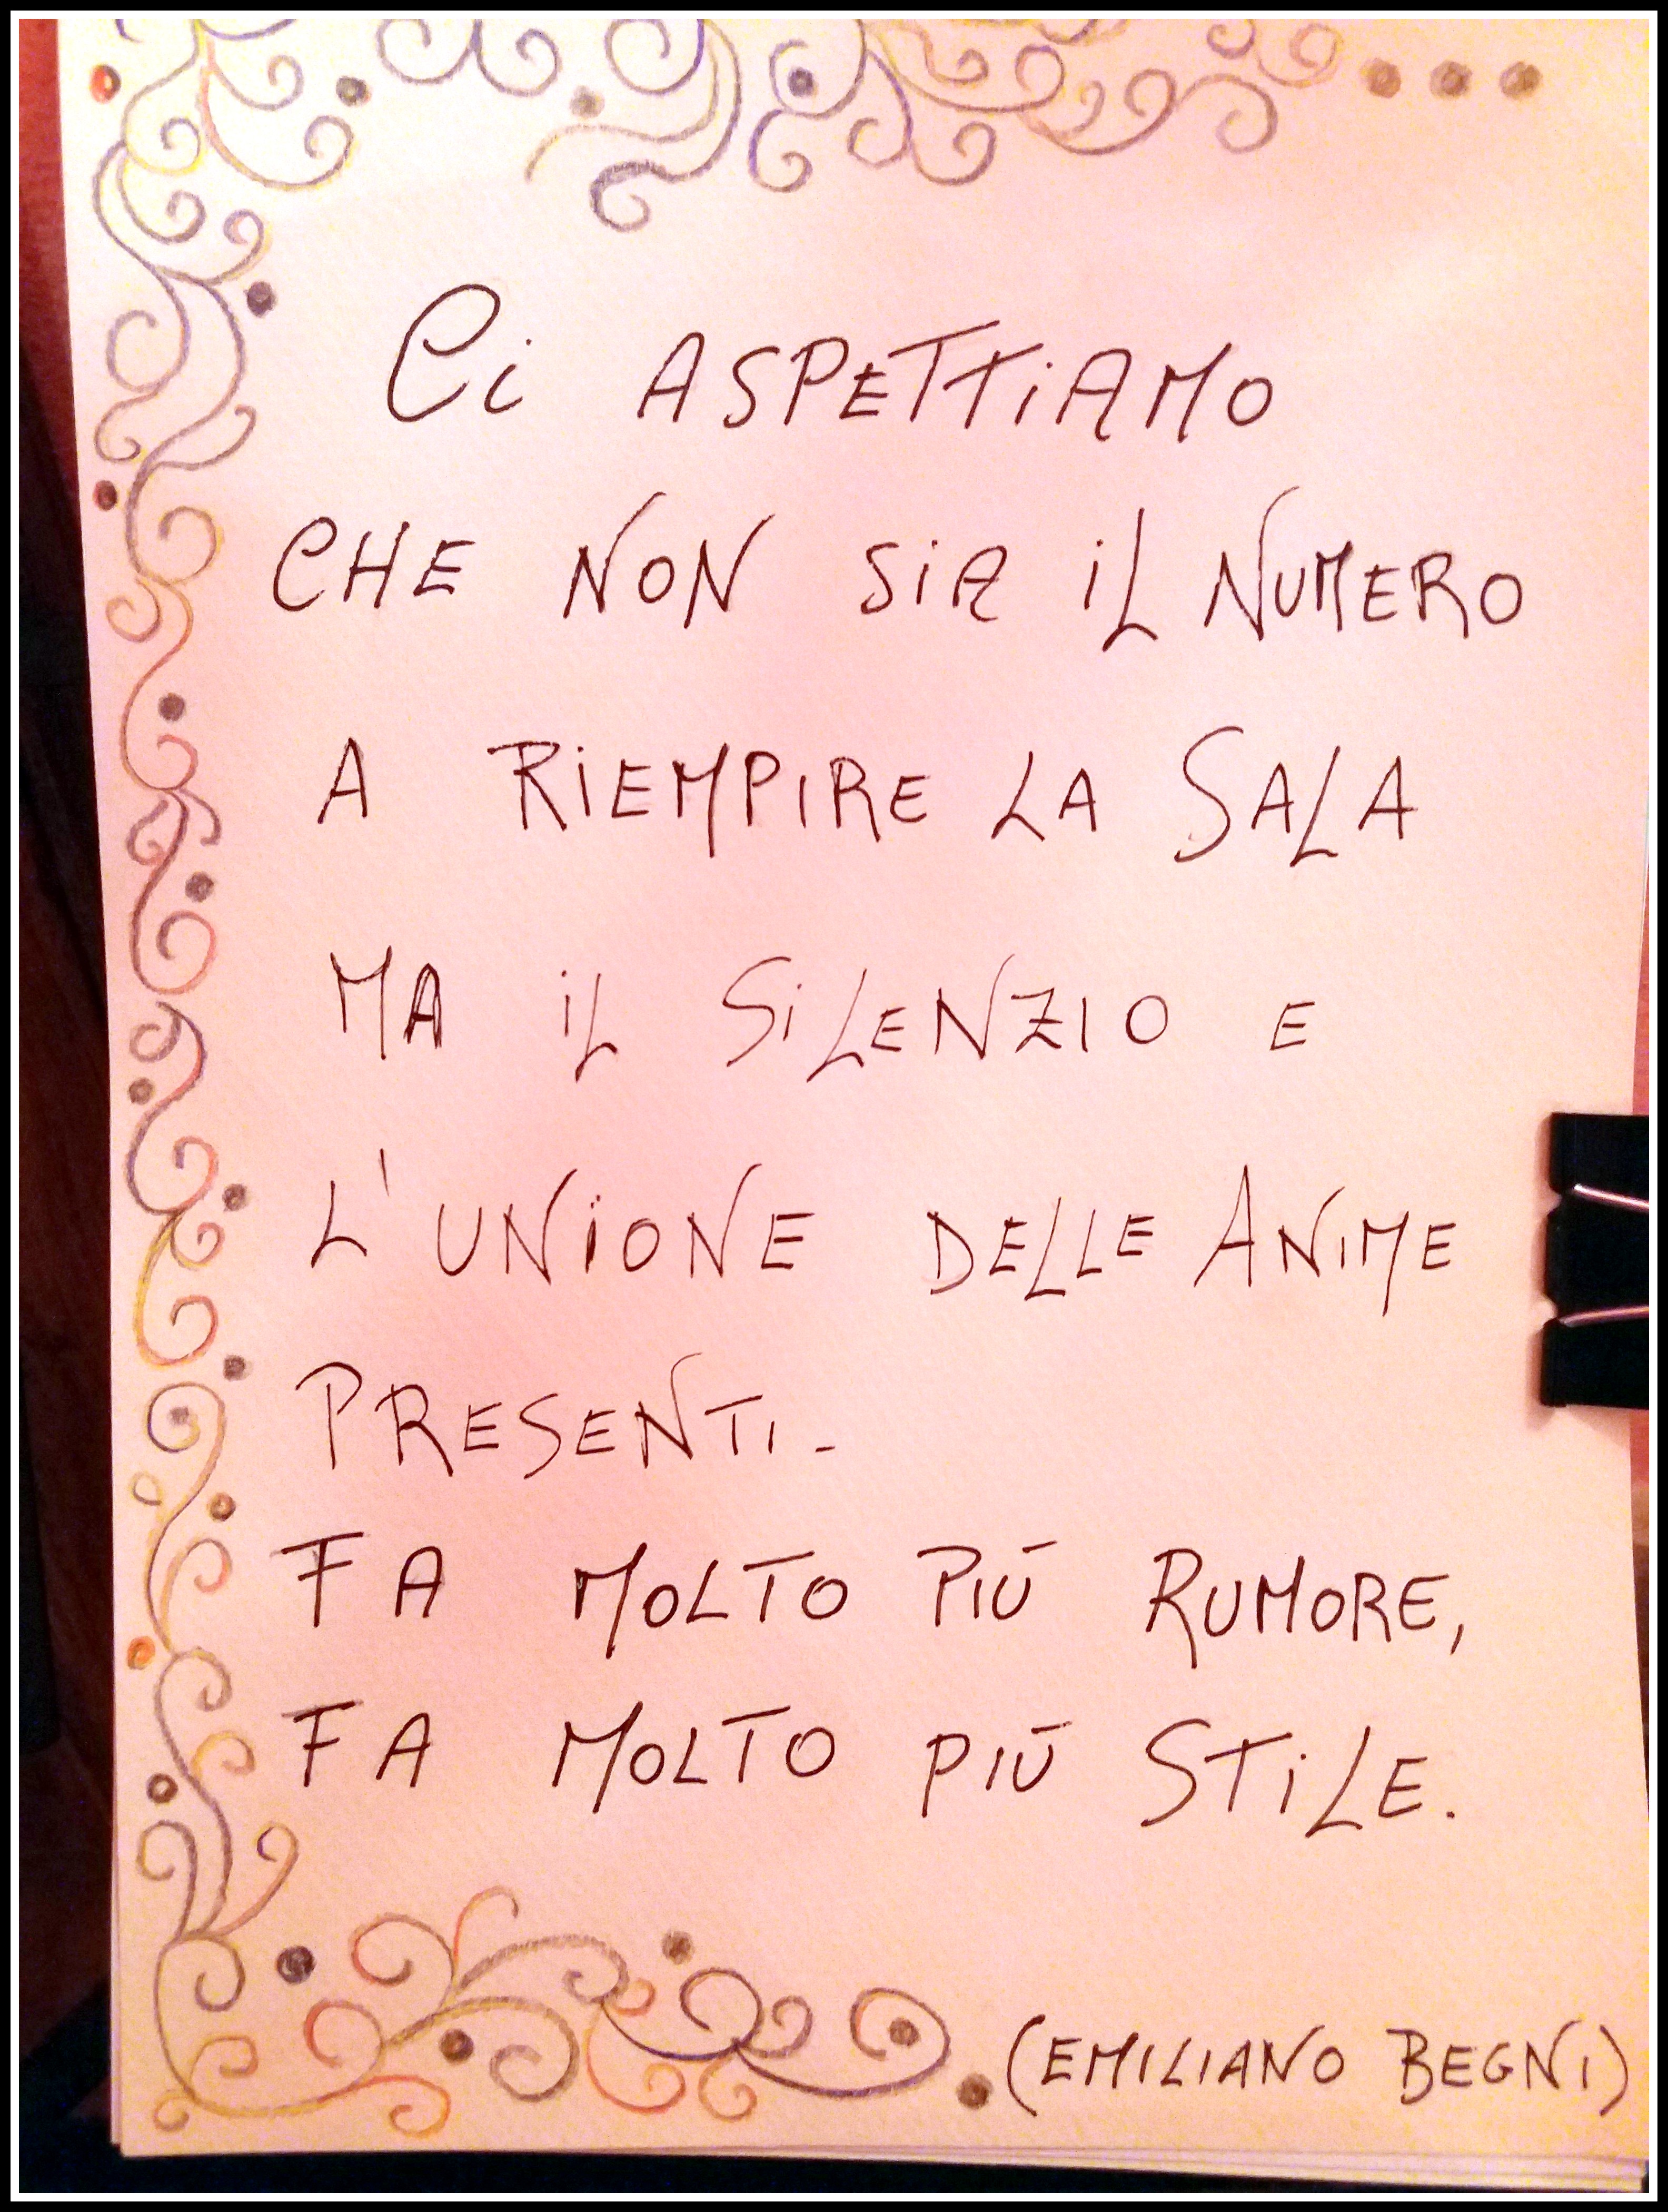 Ci ASPETTiAMO
CHE NON SiA iL NUMERO
A RiEMPIRE LA SALA
MA iL SiLENZIO E
L'UNiONE DELLE ANIME
PRESENTI.
FA MOLTO PIÙ RUMORE,
FA MOLTO PIÙ STiLE.
(EMILIANO BEGNI)